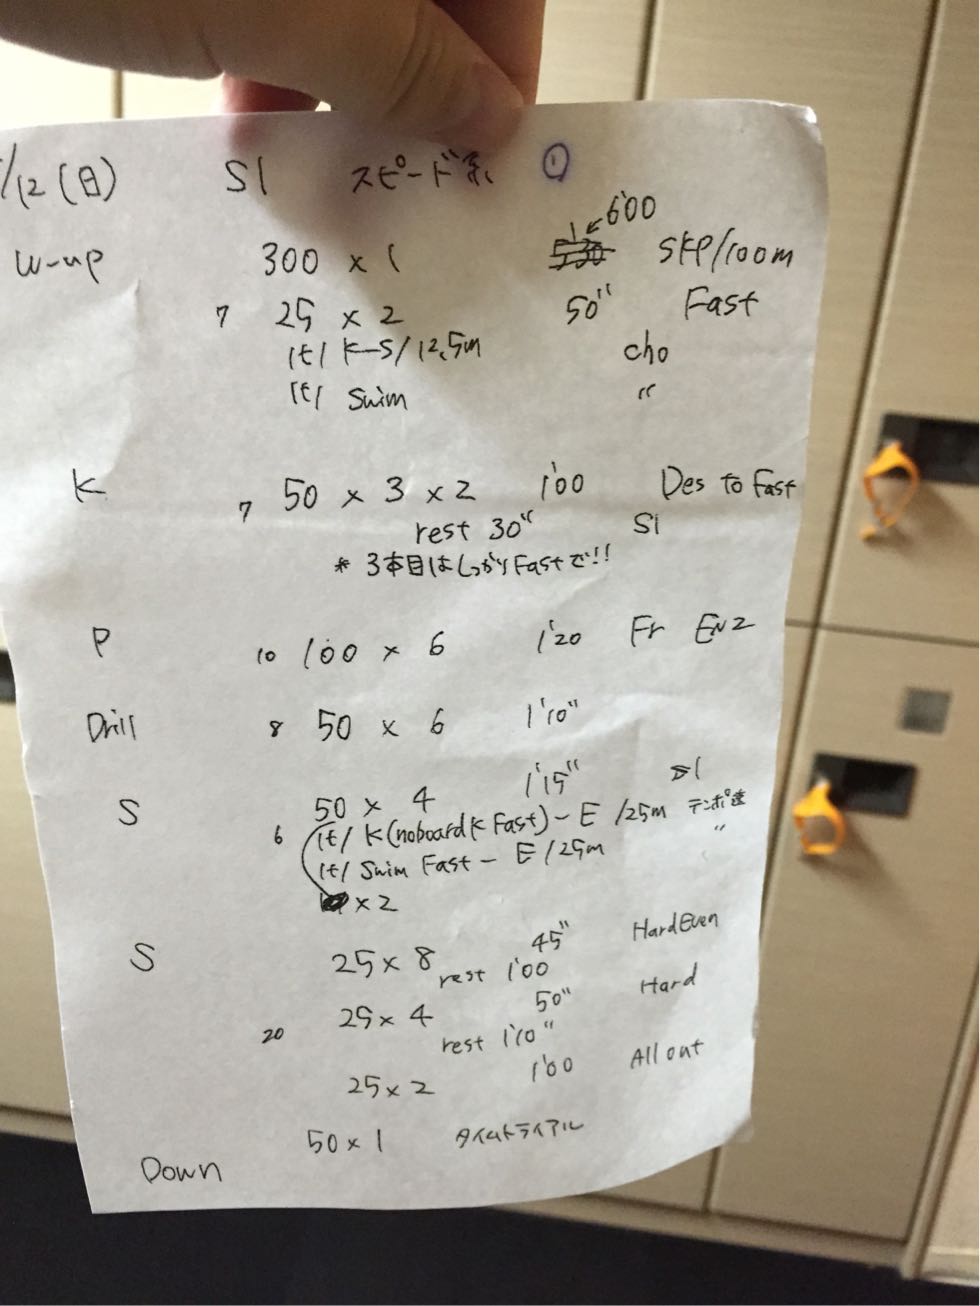 /12(日) S1 スピード系 ①
6'00
W-up 300 × 1 5'30 SKP/100m
7 25 × 2 50" Fast
1t/ K-S/12.5m cho
1t/ Swim "
K 7 50 × 3 × 2 1'00 Des to Fast
rest 30" S1
* 3本目はしっかりFastで!!
P 10 100 × 6 1'20 Fr EN2
Drill 8 50 × 6 1'10"
S 50 × 4 1'15" S1
6 1t/ K(noboard K Fast)-E /25m テンポ速
1t/ Swim Fast - E/25m "
×2
S 25 × 8 45" HardEven
rest 1'00
20 25 × 4 50" Hard
rest 1'10"
25 × 2 1'00 All out
50 × 1 タイムトライアル
Down